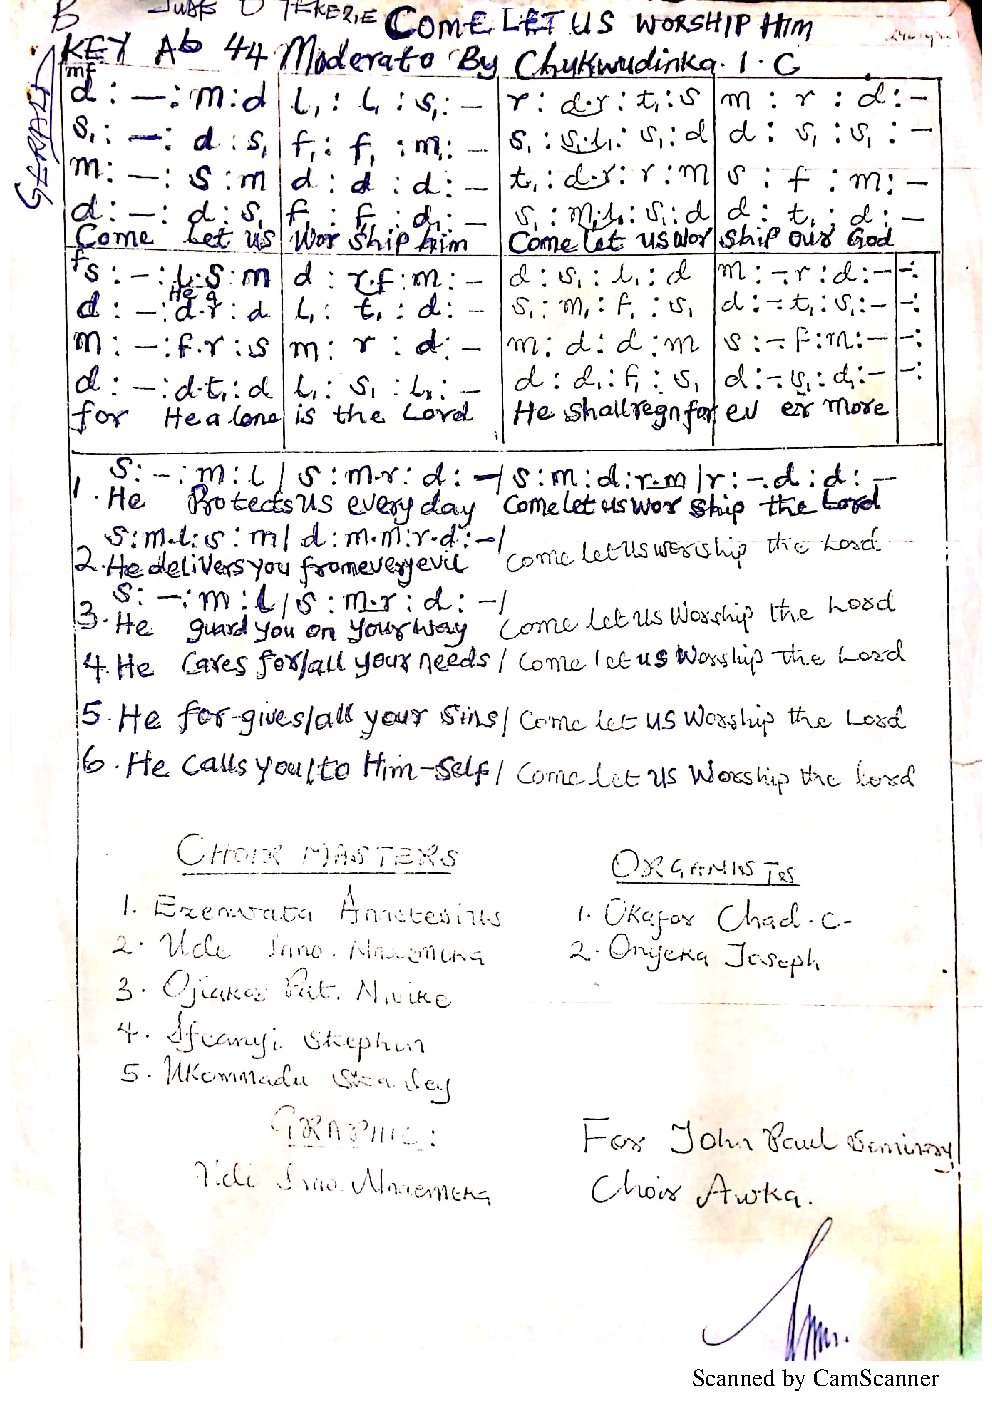 B JUDE O TEKERIE COME LET US WORSHIP HIM
KEY Ab 44 Moderato By Chukwudinka. I. C
mf
d : — : m : d | l₁ : l₁ : s₁ : — | r : d.r : t₁ : s | m : r : d : —
s₁ : — : d : s₁ | f₁ : f₁ : m₁ : — | s₁ : s₁.l₁ : s₁ : d | d : s₁ : s₁ : —
m : — : s : m | d : d : d : — | t₁ : d.r : r : m | s : f : m : —
d : — : d : s₁ | f₁ : f₁ : d₁ : — | s₁ : m₁.l₁ : s₁ : d | d : t₁ : d : —
Come Let us Wor ship him Come let us wor ship our God
f
s : — : l.s : m | d : r.f : m : — | d : s₁ : l₁ : d | m : – r : d : – | – :
He a
d : — : d.r : d | l₁ : t₁ : d : — | s₁ : m₁ : f₁ : s₁ | d : – t₁ : s₁ : – | – :
m : — : f.r : s | m : r : d : — | m : d : d : m | s : – f : m : – | – :
d : — : d.t₁ : d | l₁ : s₁ : l₁ : — | d : d₁ : f₁ : s₁ | d : – s₁ : d₁ : – | – :
for He alone is the Lord He shall regn for ev er more
s : – : m : l / s : m.r : d : – / s : m : d : r.m / r : – . d : d : —
1. He Protects us every day Come let us wor ship the Lord
s : m.l : s : m / d : m.m : r.d : – /
2. He delivers you from every evil / Come let us worship the Lord
s : – : m : l / s : m.r : d : – /
3. He guard you on your way / Come let us Worship the Lord
4. He Cares for/all your needs / Come let us Worship the Lord
5. He for-gives/all your sins / Come let us Worship the Lord
6. He calls you/to Him-self / Come let us Worship the Lord
CHOIR MASTERS
ORGANISTS
1. Ezenwata Anastesius
1. Okafor Chad. C-
2. Udi Inno. Nnaemeka
2. Onyeka Joseph
3. Ojiakor Pat. Nwike
4. Ifeanyi Stephen
5. Nkommadu Stanley
GRAPHIC :
For John Paul Seminary
Udi Inno. Nnaemeka
Choir Awka.
Scanned by CamScanner